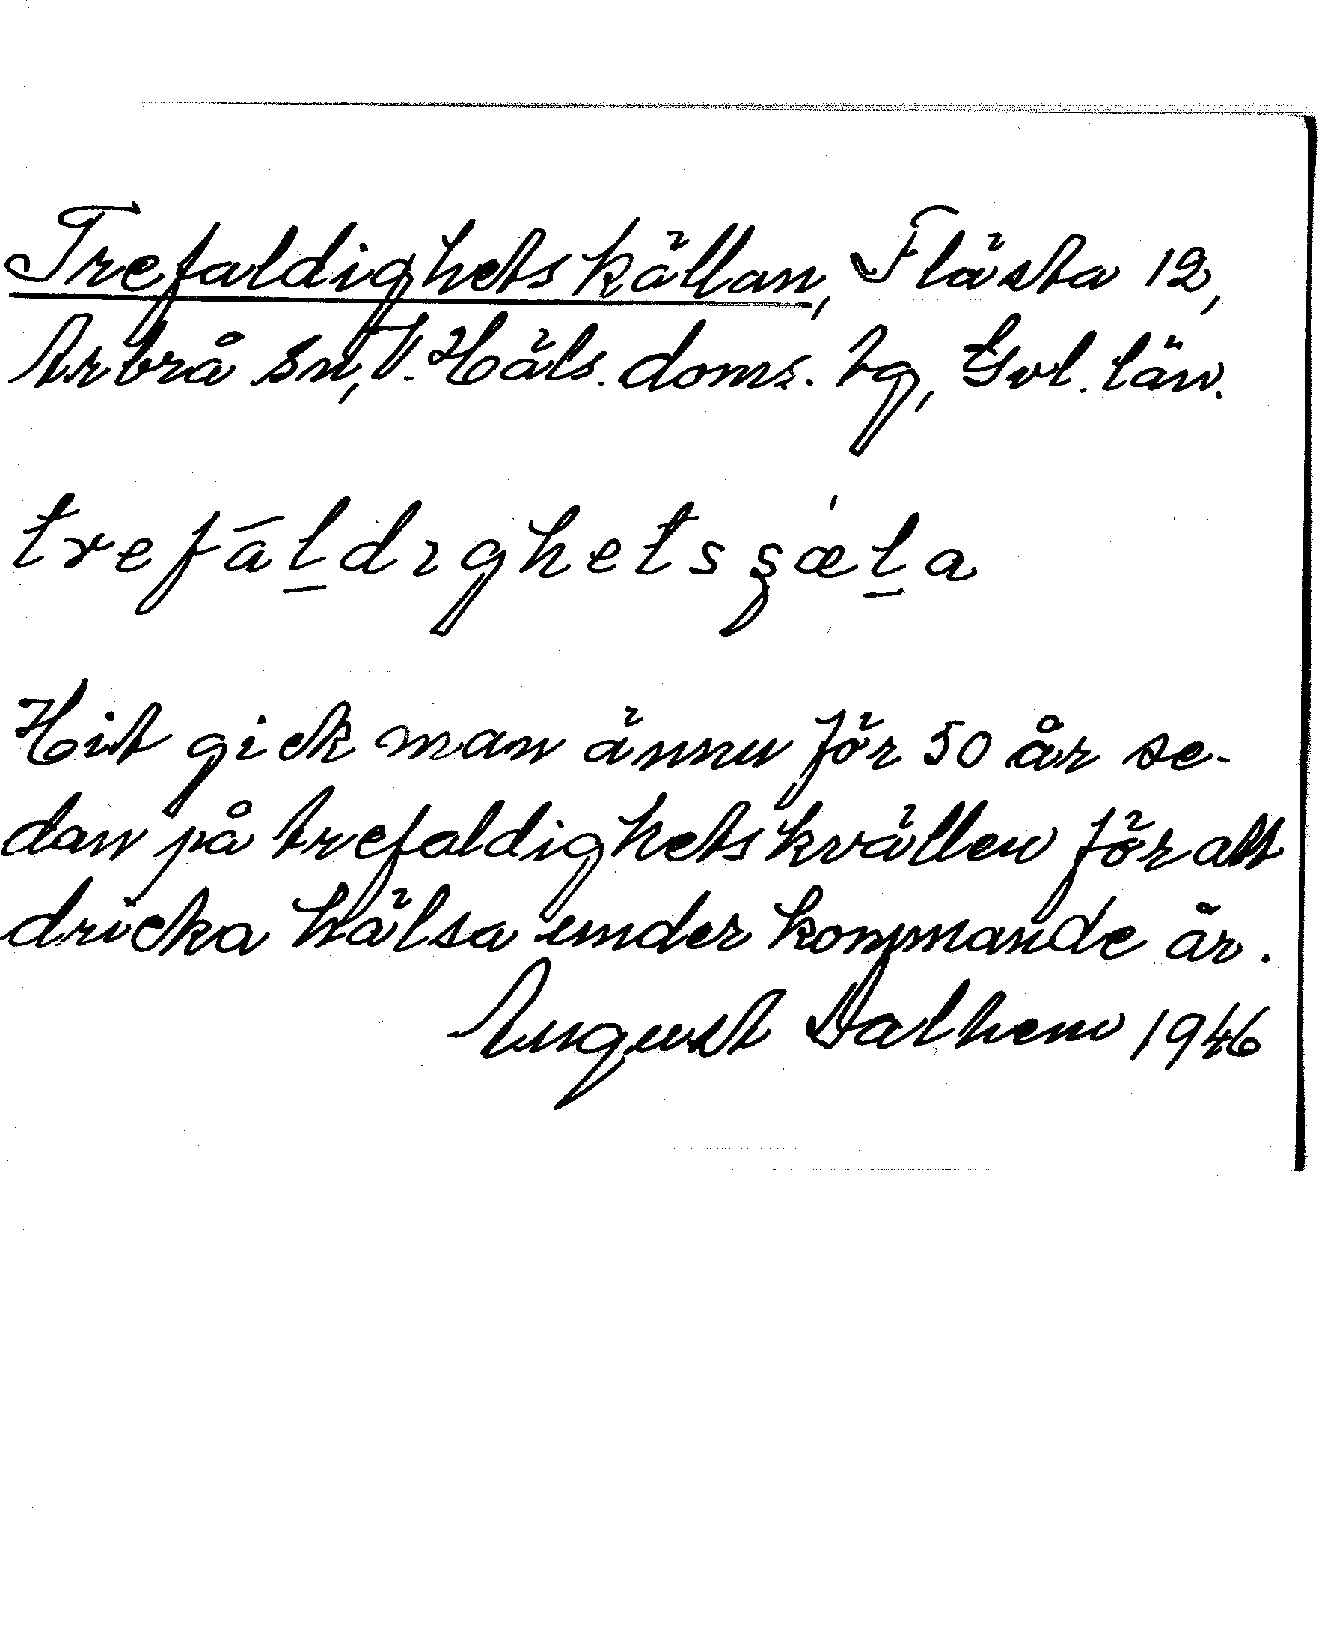 Trefaldighetskällan, Flästa 12,
Arbrå sn, V. Häls. doms. lg, Gvl. län.
trefāl̲dıghetsşæ̀l̲a
Hit gick man ännu för 50 år se-
dan på trefaldighetskvällen för att
dricka hälsa under kommande år.
August Dalhem 1946